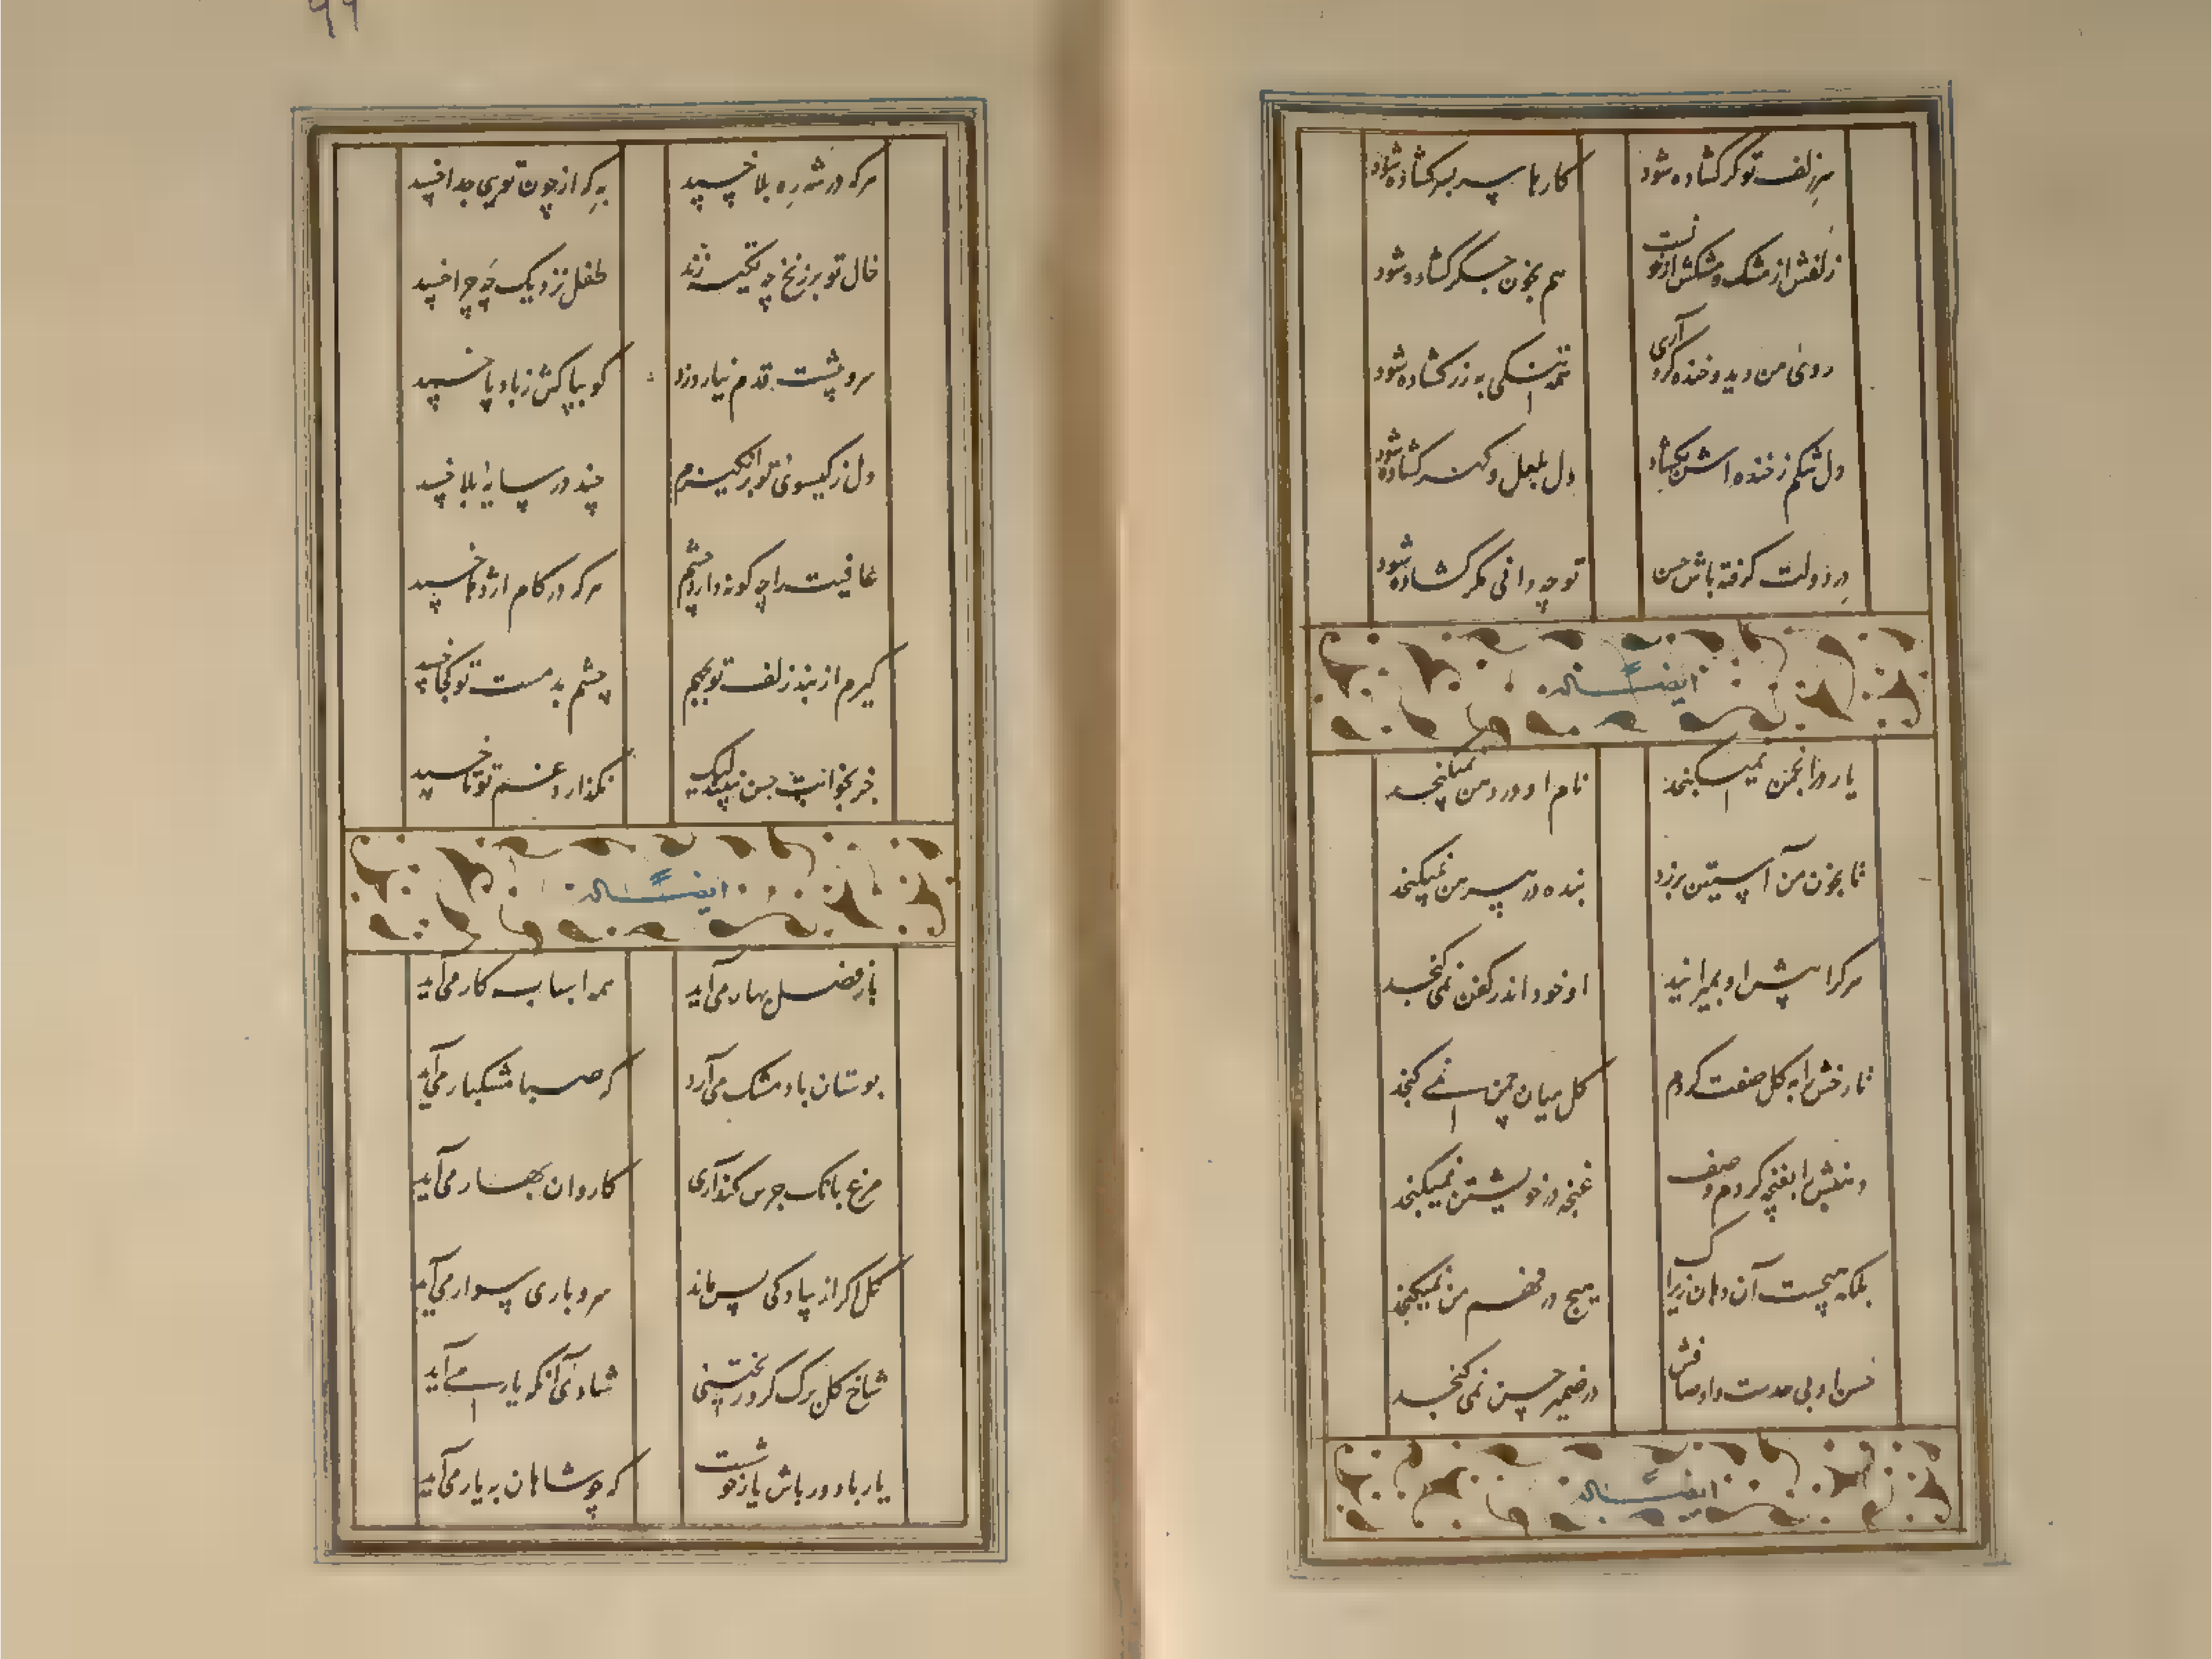 سر زلف تو گر گشاده شود کارها سر بسر گشاده شود
زلفش از مشک و مشکش از تو نیست هم بخون جگر گشاده شود
روی من دید و خنده کرد آری به زر گشاده شود
دل تنگم ز خنده اش بگشاد دل بلعل و گهر گشاده شود
در دولت گرفته باش حسن تو چه دانی مگر گشاده شود
ایضاً له
یار در انجمن نمیگنجد نام او در دهن نمیگنجد
تا بخون من آستین بر زد بنده در پیرهن نمیگنجد
هر کرا پیش او بمیرانند او خود اندر کفن نمی گنجد
تا رخش را به گل صفت کردم گل میان چمن نمی گنجد
دهنش را بغنچه کردم وصف غنچه در خویشتن نمیگنجد
بلکه هیچست آن دهان زیرا که هیچ در فهم من نمیگنجد
حسن او بی حدست و اوصافش در ضمیر حسن نمی گنجد
ایضاً له
هر که در شه ره بلا خسپد به که از چون تویی جدا خسپد
خال تو بر زنخ چه تکیه زند طفل نزدیک چه چرا خسپد
سرو پیشت قدم نیارد زد گو بیا کش ز باد پا خسپد
دل ز گیسوی تو برانگیزم چند در سایهٔ بلا خسپد
عافیت را چگونه دارد چشم هر که در کام اژدها خسپد
گیرم از بند زلف تو بجهم چشم بدمست تو کجا خسپد
جز بخوابت حسن نبیند لیک نگذارد غم تو تا خسپد
ایضاً له
باز فصل بهار می آید همه اسباب کار می آید
بوستان باد مشک می آرد کز صبا مشکبار می آید
مرغ بانگ جرس کند آری کاروان بهار می آید
گل اگر از پیادگی پس ماند سرو باری سوار می آید
شاخ گل برگ کرد شادی آنکه یار می آید
یار باد دور باش یاز خوشست کز چو شاهان به یار می آید